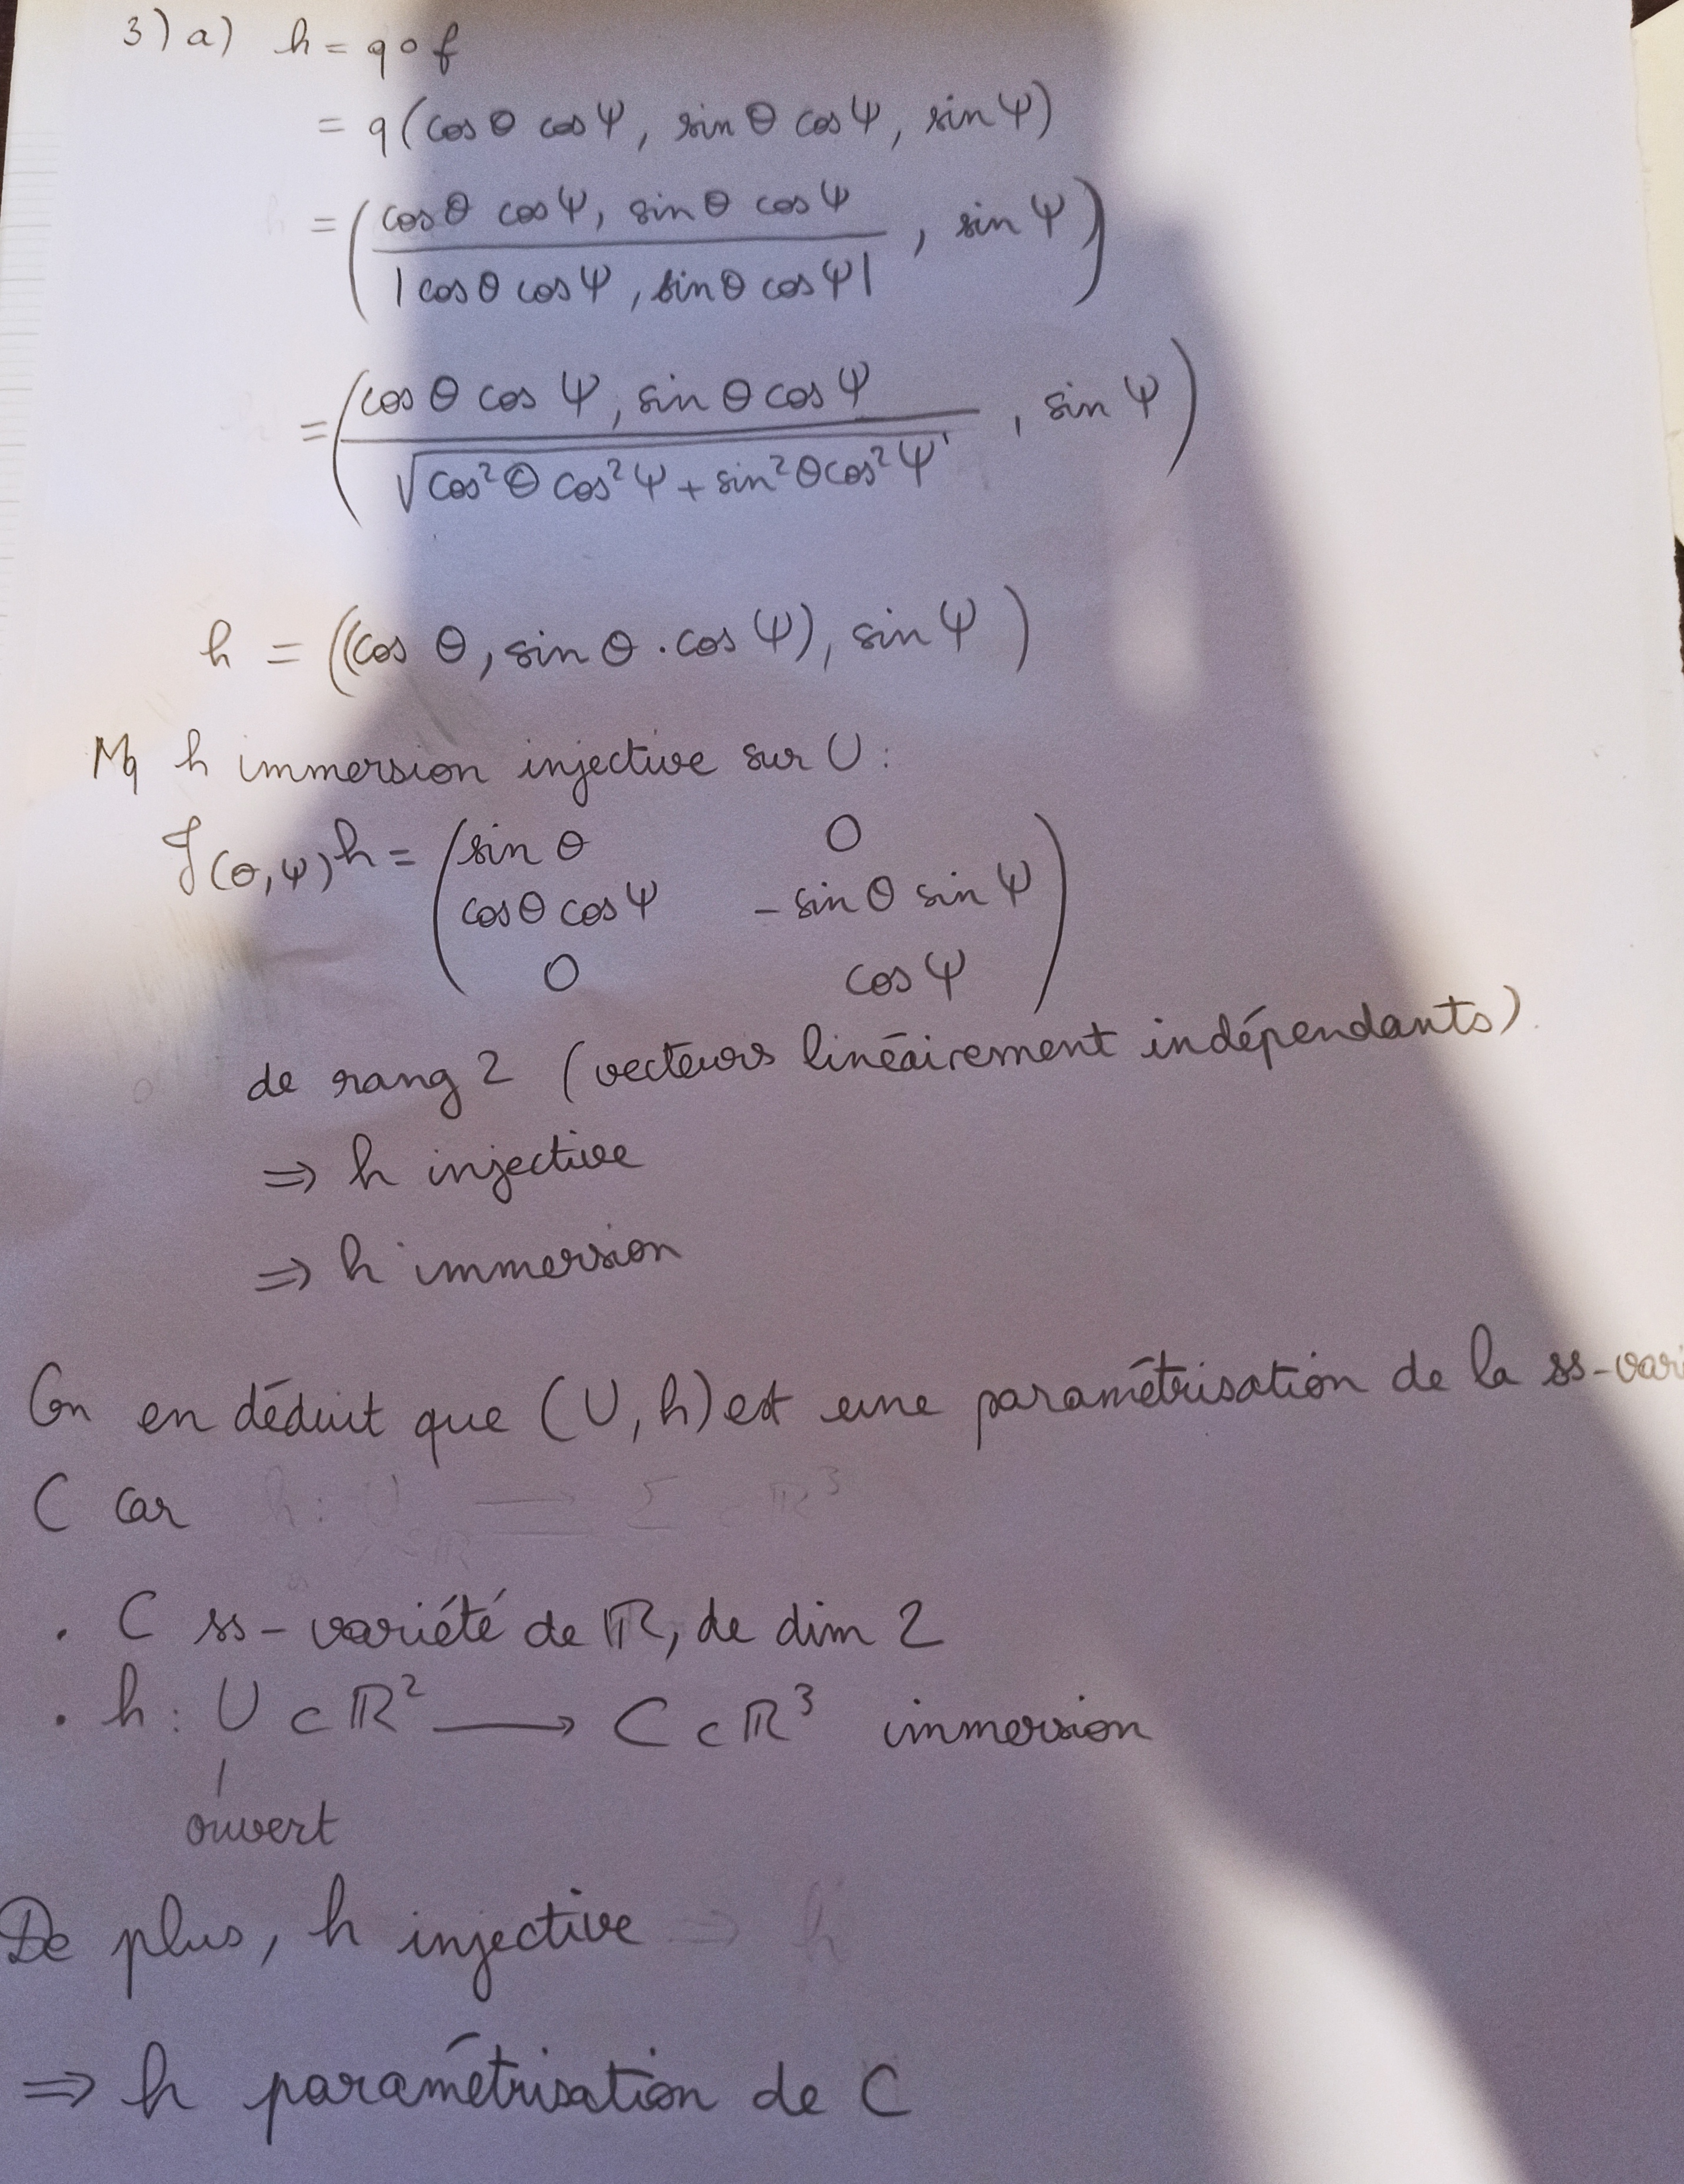 3) a) h = q ∘ f
= q (cos θ cos Ψ, sin θ cos Ψ, sin Ψ)
= ( (cos θ cos Ψ, sin θ cos Ψ) / |cos θ cos Ψ, sin θ cos Ψ| , sin Ψ )
= ( (cos θ cos Ψ, sin θ cos Ψ) / √(cos² θ cos² Ψ + sin² θ cos² Ψ) , sin Ψ )
h = ((cos θ, sin θ . cos Ψ), sin Ψ )
Mq h immersion injective sur U :
J(θ,Ψ) h = ( sin θ 0
cos θ cos Ψ - sin θ sin Ψ
0 cos Ψ )
de rang 2 (vecteurs linéairement indépendants).
⇒ h injective
⇒ h immersion
On en déduit que (U, h) est une paramétrisation de la ss-vari
C car
. C ss-variété de ℝ, de dim 2
. h : U ⊂ ℝ² ⟶ C ⊂ ℝ³ immersion
ouvert
De plus, h injective
⇒ h paramétrisation de C